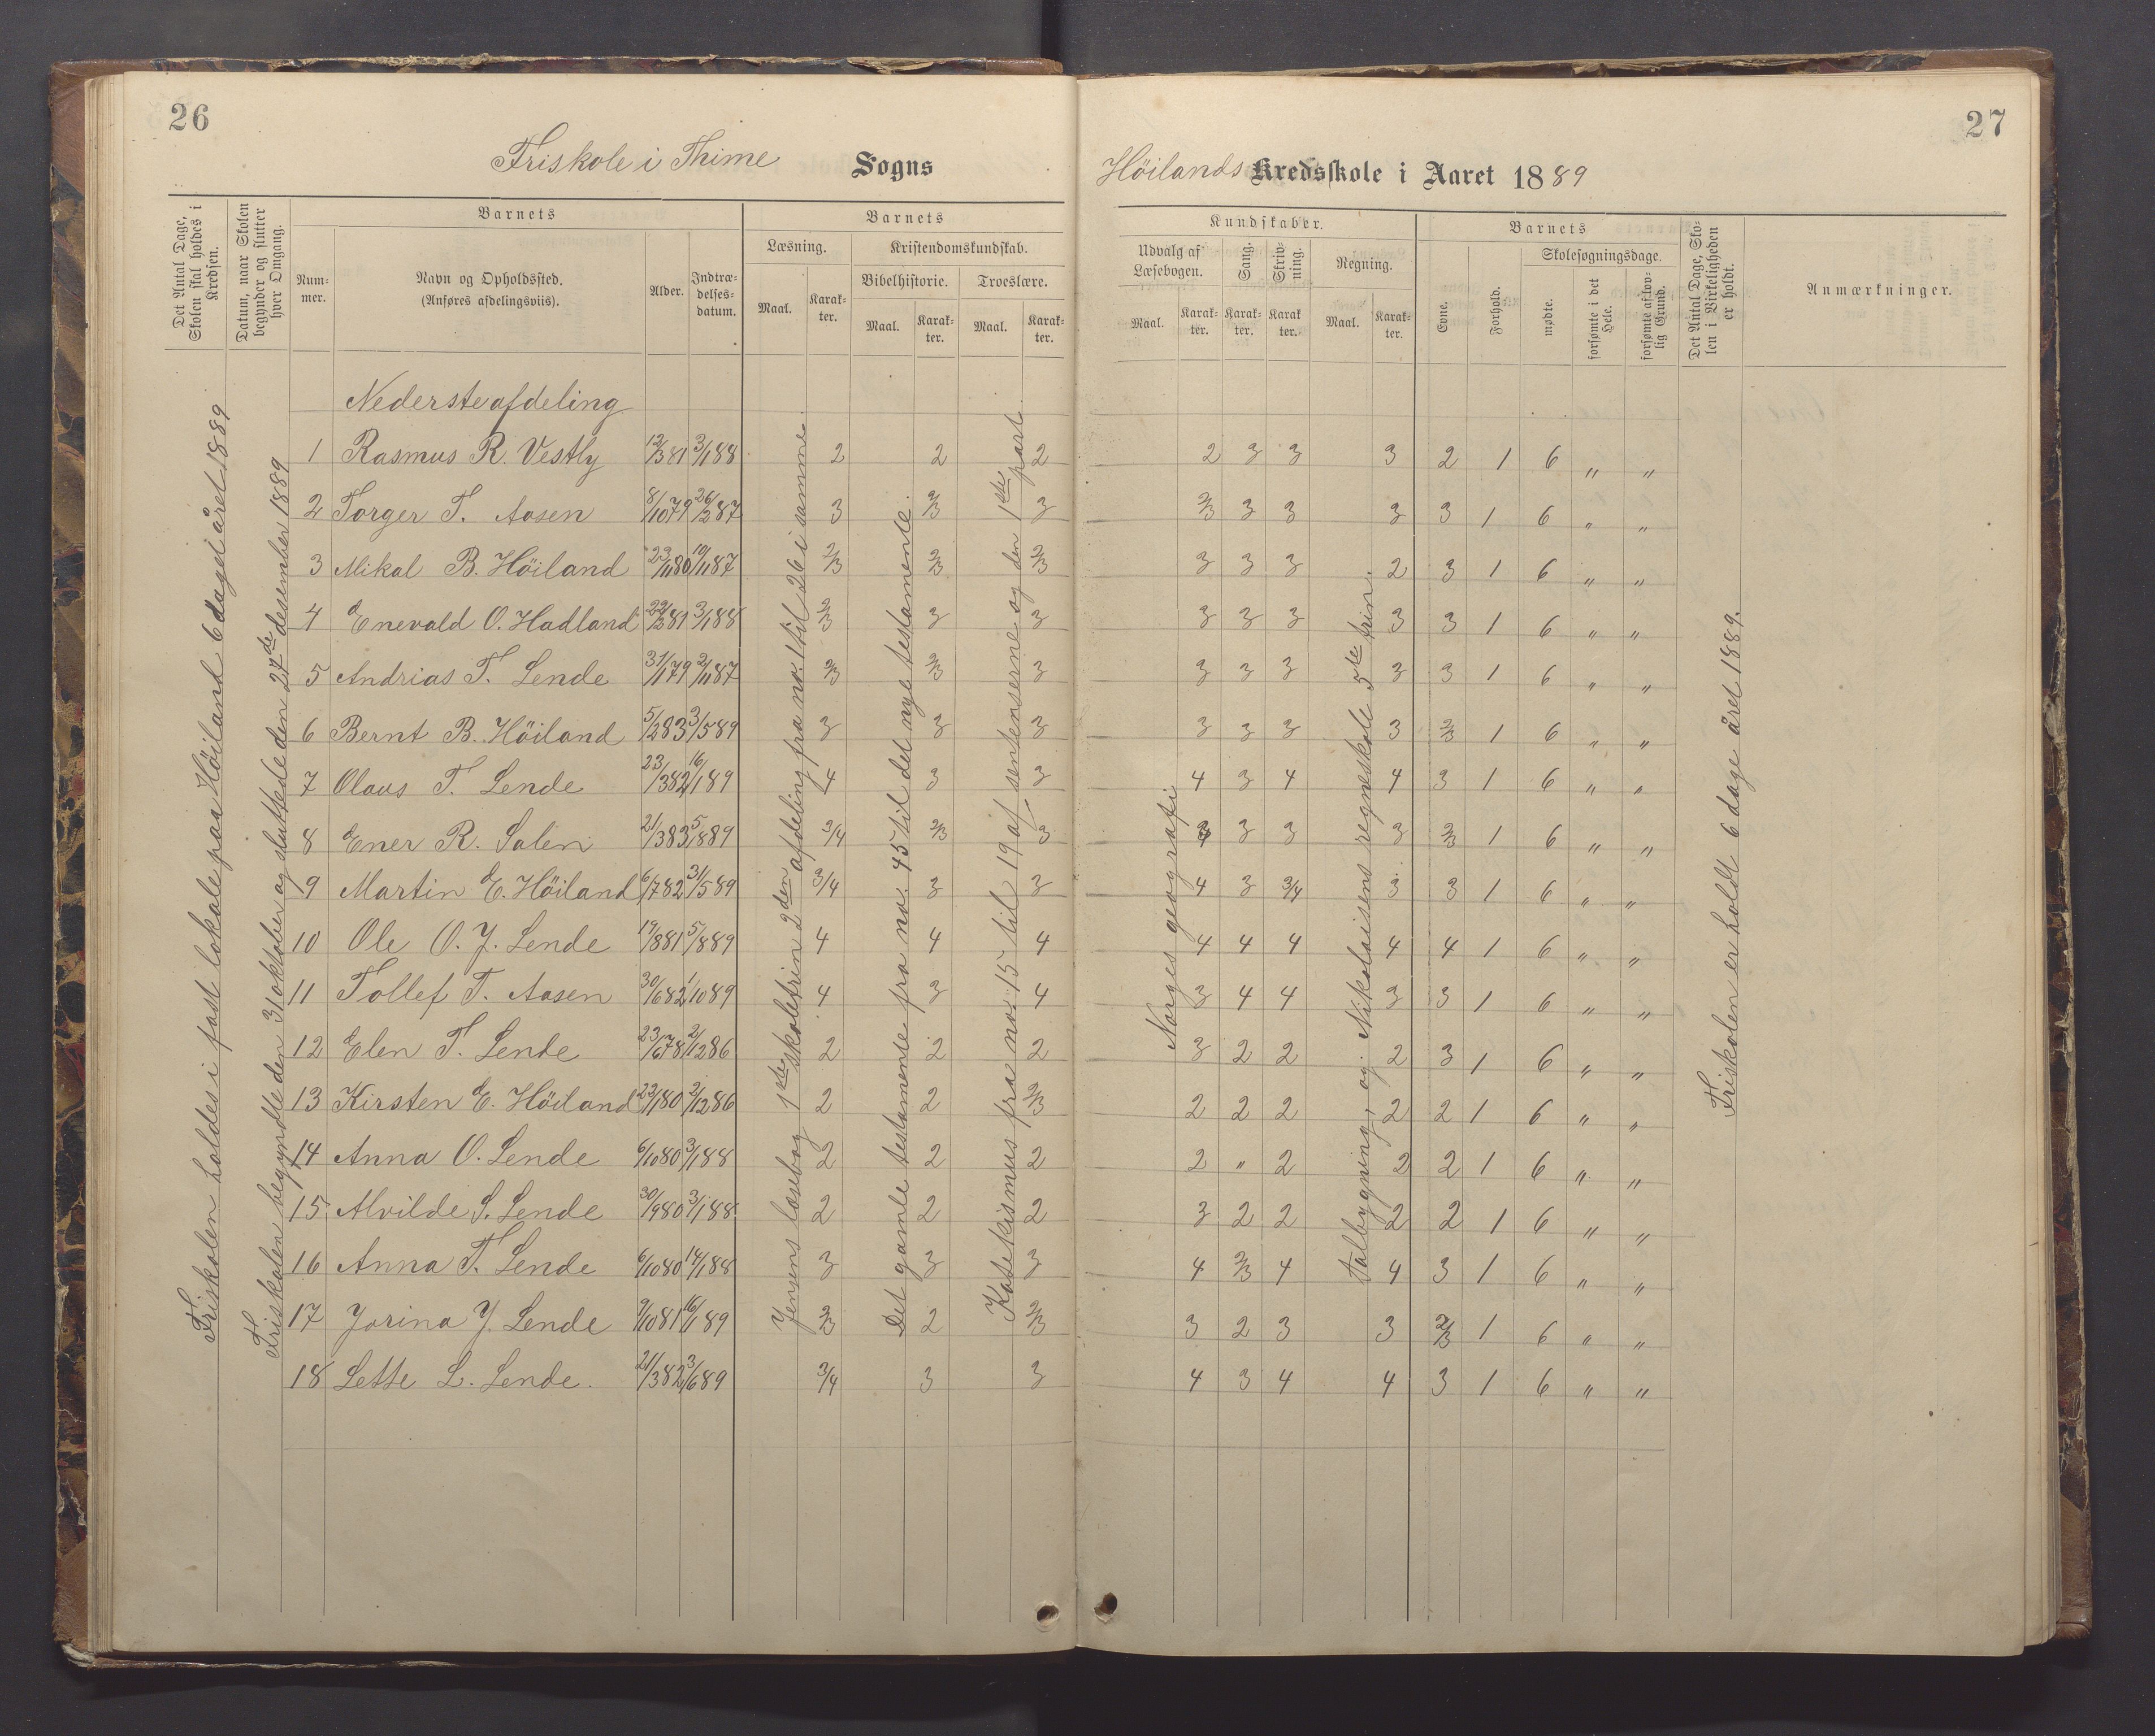 26
Friskole i Thime Sogns
Det Antal Dage, Skolen skal holdes i Kredsen.
Datum, naar Skolen begynder og slutter hver Omgang.
Barnets
Nummer.
Navn og Opholdssted.
(Anføres afdelingsviis).
Alder.
Indtrædelsesdatum.
Barnets
Læsning.
Kristendomskundskab.
Bibelhistorie.
Troeslære.
Maal. Karakter. Maal. Karakter. Maal. Karakter.
Friskolen holdes i fast lokale paa Höiland 6 dage i året 1889
Friskolen begyndte den 31 oktober og sluttede den 27de desember 1889
Jensens læsebog 1ste skoletrin 2den afdeling fra no. 1 til 26 i samme
Det gamle testamente fra no. 45 til det nye testamente.
Katekismus fra no. 15 til 19 af sentenserne og den 1ste part
Nederste afdeling
1 Rasmus R. Vestly 12/3 81 3/1 88 2 2 2
2 Torger T. Aasen 8/10 79 26/2 87 3 2/3 3
3 Mikal B. Höiland 22/11 80 10/11 87 2/3 2/3 2/3
4 Enevald O. Hadland 22/3 81 3/1 88 2/3 3 3
5 Andrias T. Lende 31/1 79 2/11 87 2/3 2/3 3
6 Bernt B. Höiland 5/2 83 3/5 89 3 3 3
7 Olaus T. Lende 23/3 82 16/1 89 4 3 3
8 Ener R. Salen 21/3 83 5/8 89 3/4 2/3 3
9 Martin E. Höiland 6/7 82 31/5 89 3/4 3 3
10 Ole O. J. Lende 19/8 81 5/8 89 4 4 4
11 Tollef T. Aasen 30/6 82 1/10 89 4 3 4
12 Elen T. Lende 23/6 78 2/12 86 2 2 2
13 Kirsten E. Höiland 22/1 80 2/12 86 2 2 2/3
14 Anna O. Lende 6/10 80 3/1 88 2 2 2
15 Alvilde S. Lende 30/9 80 3/1 88 2 2 2
16 Anna T. Lende 6/10 80 14/1 88 3 3 3
17 Jorina J. Lende 9/10 81 16/1 89 2/3 2 2/3
18 Lette L. Lende. 21/3 82 3/6 89 3/4 3 3
27
Höilands Kredsskole i Aaret 1889
Kundskaber.
Udvalg af Læsebogen.
Sang.
Skrivning.
Regning.
Maal. Karakter. Karakter. Karakter. Maal. Karakter.
Barnets
Evne.
Forhold.
Skolesøgningsdage.
mødte.
forsømte i det Hele.
forsømte af lovlig Grund.
Det Antal Dage, Skolen i Virkeligheden er holdt.
Anmærkninger.
Norges geografi
Talbygning, og Nikolaisens regneskole 5te trin.
Friskolen er holdt 6 dage året 1889.
2 3 3 3 2 1 6 " "
2/3 3 3 3 3 1 6 " "
3 3 3 2 3 1 6 " "
3 3 3 3 3 1 6 " "
3 3 3 3 3 1 6 " "
3 3 3 3 2/3 1 6 " "
4 3 4 4 3 1 6 " "
3 3 3 3 2/3 1 6 " "
4 3 3/4 3 3 1 6 " "
4 4 4 4 4 1 6 " "
3 4 4 3 3 1 6 " "
3 2 2 2 3 1 6 " "
2 2 2 2 2 1 6 " "
2 " 2 2 2 1 6 " "
3 2 2 2 2 1 6 " "
4 2/3 4 4 3 1 6 " "
3 2 3 3 2/3 1 6 " "
4 3 4 4 3 1 6 " "